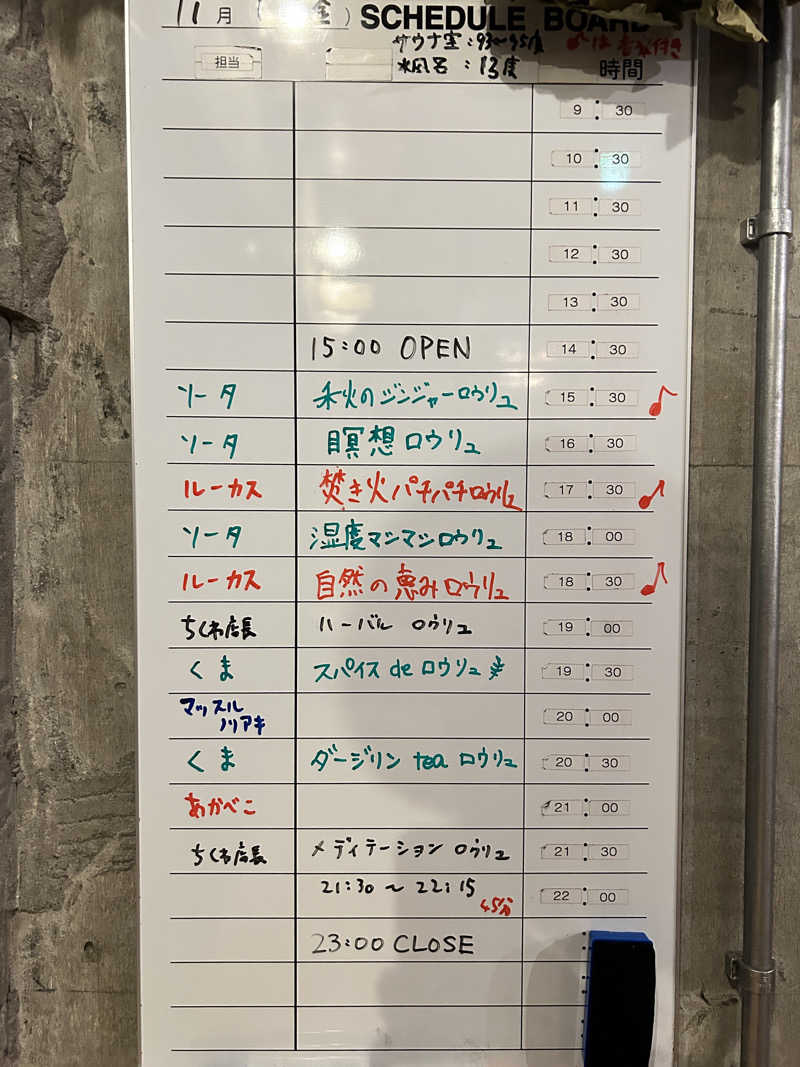 11月 ( 金 ) SCHEDULE BOARD
サウナ室:93~95度 ♪は音楽付き
水風呂 :13度
担当 時間
9:30
10:30
11:30
12:30
13:30
15:00 OPEN 14:30
ソータ 秋のジンジャーロウリュ 15:30 ♪
ソータ 瞑想ロウリュ 16:30
ルーカス 焚き火パチパチロウリュ 17:30 ♪
ソータ 湿度マシマシロウリュ 18:00
ルーカス 自然の恵みロウリュ 18:30 ♪
ちくわ店長 ハーバル ロウリュ 19:00
くま スパイス de ロウリュ 19:30
マッスル
ノリアキ 20:00
くま ダージリン tea ロウリュ 20:30
あかべこ 21:00
ちくわ店長 メディテーション ロウリュ 21:30
21:30~22:15 45分 22:00
23:00 CLOSE